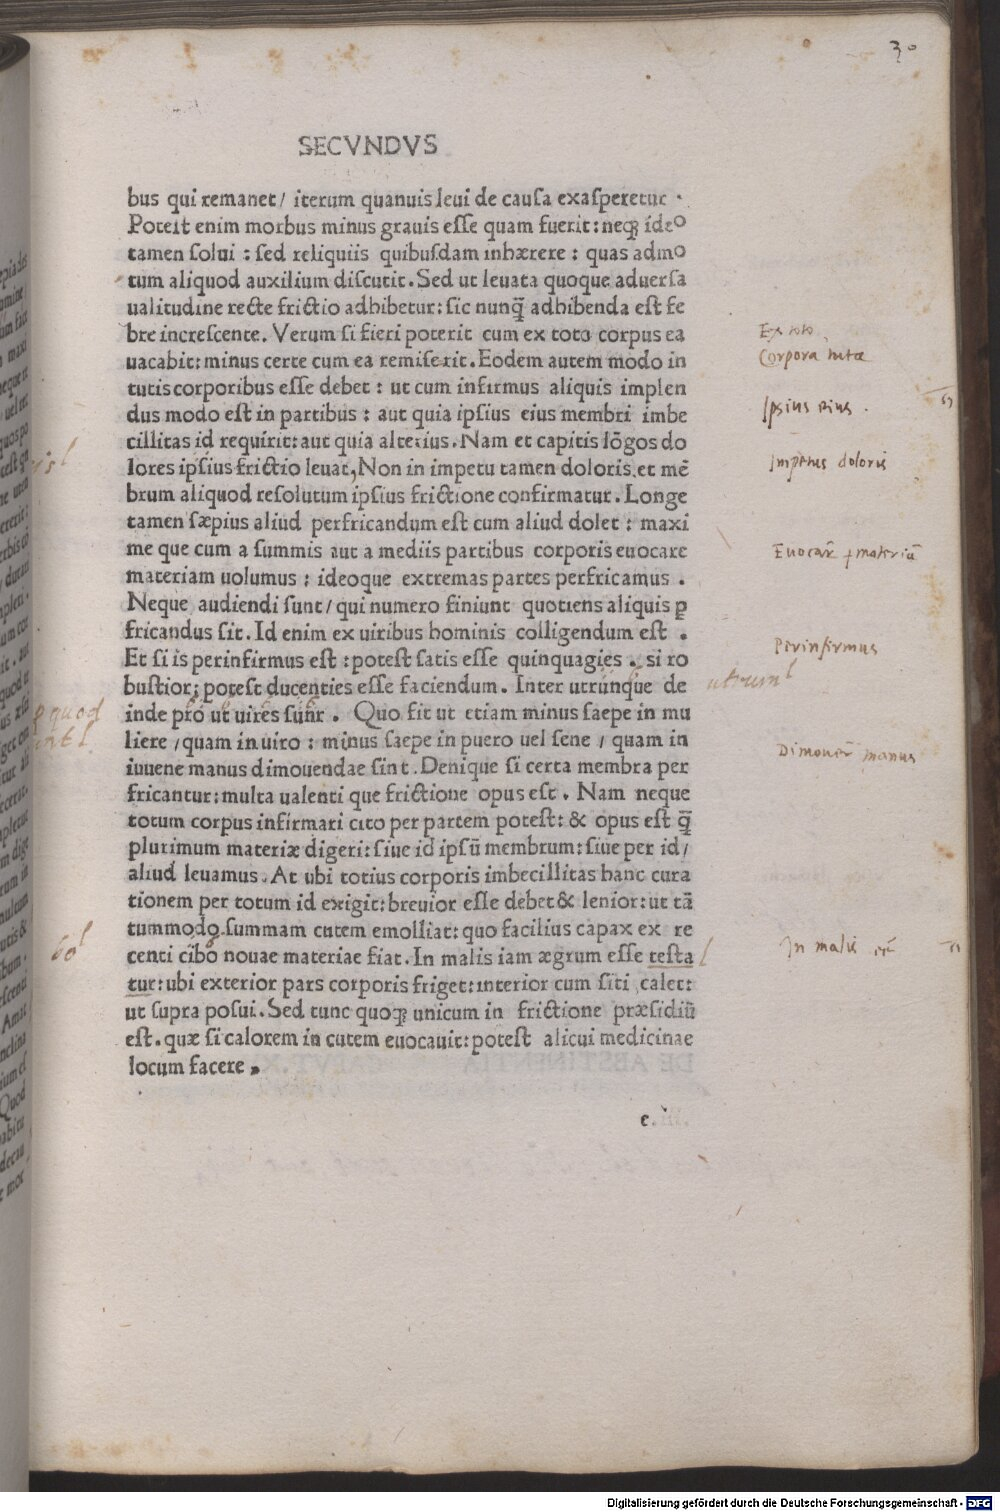 30
SECVNDVS
bus qui remanet/ iterum quanuis leui de causa exasperetur .
Potest enim morbus minus grauis esse quam fuerit: neqꝫ ideo
tamen solui : sed reliquiis quibusdam inhærere : quas admo
tum aliquod auxilium discutit. Sed ut leuata quoque aduersa
ualitudine recte frictio adhibetur: sic nunq̃ adhibenda est fe
bre increscente. Verum si fieri poterit cum ex toto corpus ea
uacabit: minus certe cum ea remiserit. Eodem autem modo in
tutis corporibus esse debet : ut cum infirmus aliquis implen
dus modo est in partibus : aut quia ipsius eius membri imbe
cillitas id requirit: aut quia alterius. Nam et capitis lõgos do
lores ipsius frictio leuat, Non in impetu tamen doloris. et mẽ
brum aliquod resolutum ipsius frictione confirmatur. Longe
tamen sæpius aliud perfricandum est cum aliud dolet : maxi
me que cum a summis aut a mediis partibus corporis euocare
materiam uolumus : ideoque extremas partes perfricamus .
Neque audiendi sunt/ qui numero finiunt quotiens aliquis ꝑ
fricandus sit. Id enim ex uiribus hominis colligendum est .
Et si is perinfirmus est : potest satis esse quinquagies . si ro
bustior; potest ducenties esse faciendum. Inter utrunque de
inde pro ut uires sunt . Quo fit ut etiam minus saepe in mu
liere /quam in uiro : minus saepe in puero uel sene / quam in
iuuene manus dimouendae sint. Denique si certa membra per
fricantur: multa ualenti que frictione opus est. Nam neque
totum corpus infirmari cito per partem potest: & opus est q̃
plurimum materiæ digeri: siue id ipsũ membrum: siue per id/
aliud leuamus. At ubi totius corporis imbecillitas hanc cura
tionem per totum id exigit: breuior esse debet & lenior: ut tã
tummodo summam cutem emolliat: quo facilius capax ex re
centi cibo nouae materiae fiat. In malis iam ægrum esse testa
tur: ubi exterior pars corporis friget: interior cum siti calet:
ut supra posui. Sed tunc quoqꝫ unicum in frictione præsidiũ
est. quæ si calorem in cutem euocauit: potest alicui medicinae
locum facere .
e.
Ex toto
Corpora tuta
Ipsius eius .
Impetus doloris
Perinfirmus
utrum
In malis
Digitalisierung gefördert durch die Deutsche Forschungsgemeinschaft - DFG